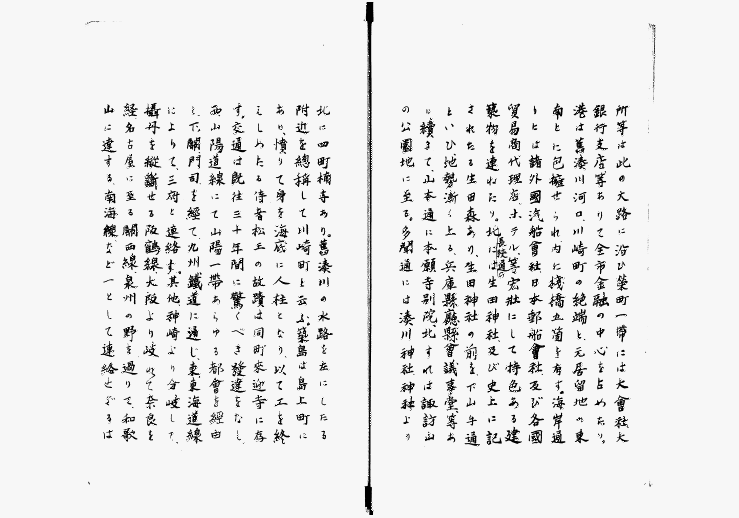 所等は此の大路に沿ひ築町一帯には大會社大
銀行支店等ありて全市金融の中心を占めたり。
港は舊湊川河口、川崎町の絶端と元居留地の東
南とに包擁せられ内に棧橋五箇を有す。海岸通
りとは諸外國汽船會社日本郵船會社及び各國
貿易商代理店ホテル等宏壯にして特色ある建
築物を連ねたり。北には生田神社、及び史上に記
されたる生田森あり、生田神社の前を下山手通
といひ地勢漸く上る、兵庫縣廳縣會議事堂等あ
り續きて山本通に本願寺別院北すれは諏訪山
の公園地に至る。多聞通には湊川神社神社より
北に四町楠寺あり。舊湊川の水路を左にしたる
附近を總稱して川崎町と云ふ。築島は島上町に
あり、憤りて身を海底に人柱となり以て工を終
へしめたる侍者松王の故蹟は同町來迎寺に存
す。交通は既往三十年間に驚くべき發達をなし
西山陽道線にて山陽一帶あらゆる都會を經由
し下關門司を經て九州鐵道に通し、東東海道線
によりて三府と連絡す。其他神崎より分岐して
攝丹を縱斷せる阪鶴線大阪より岐れて奈良を
經名古屋に至る關西線、泉州の野を過りて和歌
山に達する、南海線など一として連絡せざるは